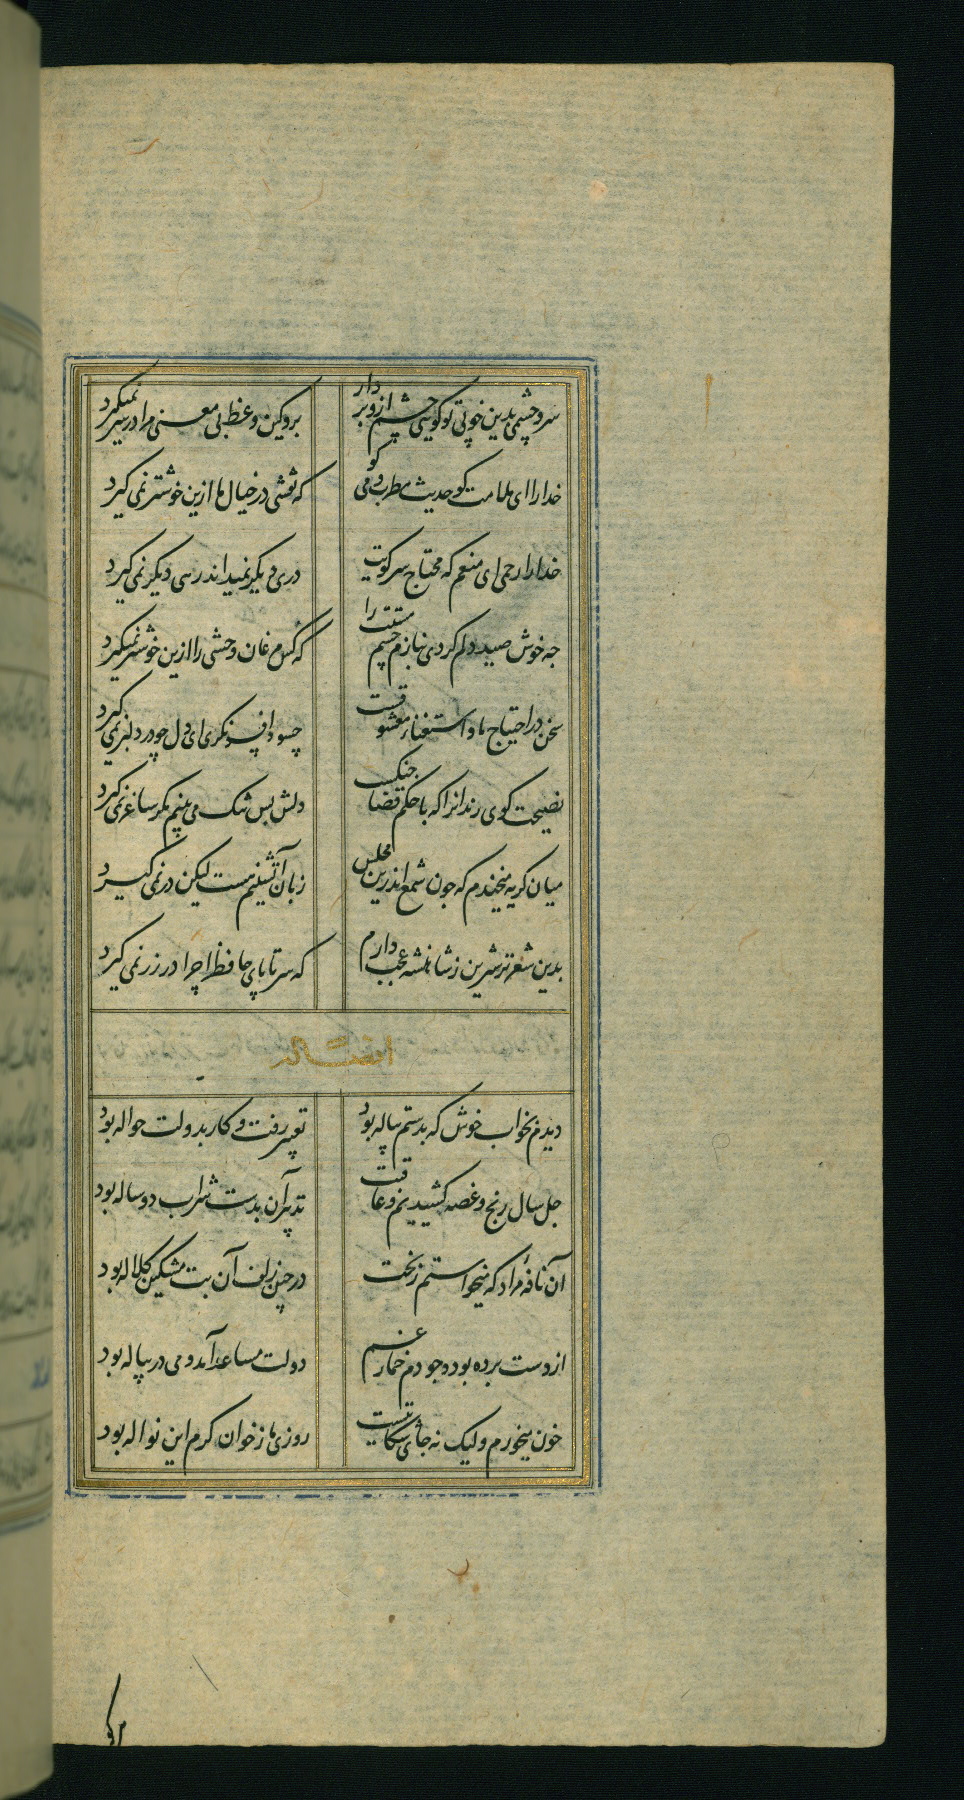 سر و چشمی بدین خوبی تو گویی چشم ازو بر دار
برو کین وعظ بی معنی مرا در سر نمیگیرد
خدارا ای ملامت گو حدیث مطرب و می گو
که نقشی در خیال ما ازین خوشتر نمی گیرد
خدارا رحمی ای منعم که محتاج سر کویت
دری دیگر نمیداند رهی دیگر نمی گیرد
چه خوش صید دلم کردی بنازم چشم مستت را
که کس مرغان وحشی را ازین خوشتر نمیگیرد
سخن در احتیاج ما و استغنای معشوقست
چه سود افسونگری ای دل چو در دلبر نمی گیرد
نصیحت گوی رندانرا که با حکم قضا جنگست
دلش بس تنگ می بینم مگر ساغر نمی گیرد
میان گریه میخندم که چون شمع اندرین مجلس
زبان آتشینم هست لیکن در نمی گیرد
بدین شعر تر شیرین ز شاهنشه عجب دارم
که سر تا پای حافظ را چرا در زر نمی گیرد
دیدم بخواب خوش که بدستم پیاله بود
تعبیر رفت و کار بدولت حواله بود
چل سال رنج و غصه کشیدیم و عاقبت
تدبیر آن بدست شراب دو ساله بود
آن نافه مراد که میخواستم ز بخت
در چین زلف آن بت مشکین کلاله بود
از دست برده بود وجودم خمار غم
دولت مساعد آمد و می در پیاله بود
خون میخورم ولیک نه جای شکایتست
روزی ما ز خوان کرم این نواله بود